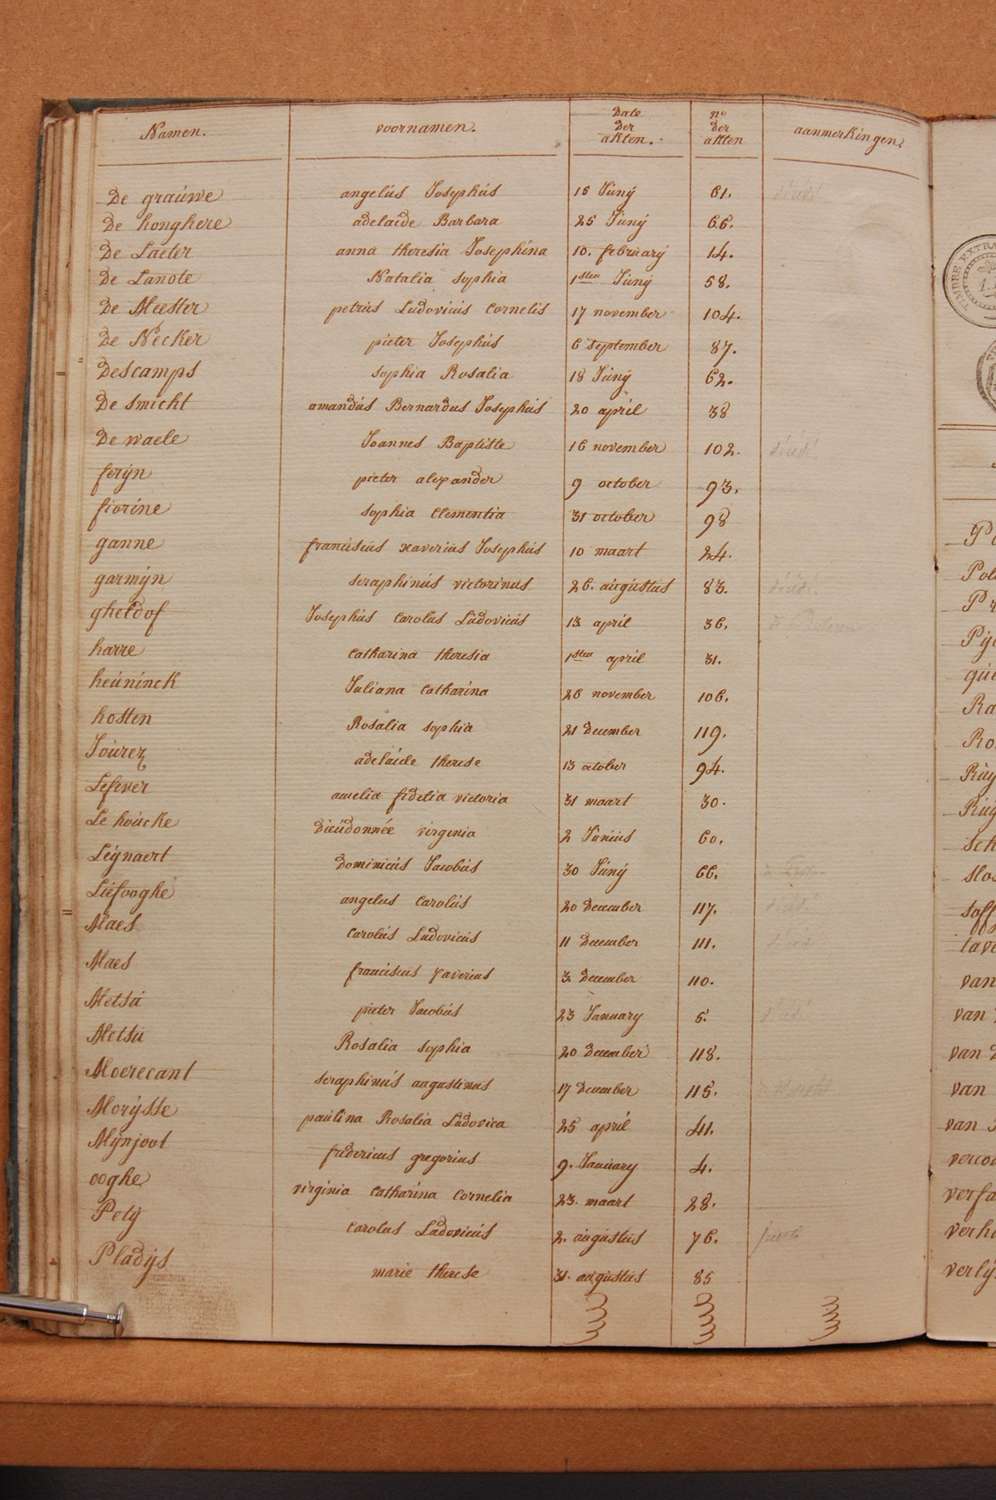 Namen. voornamen. Date der akten. nº der akten aanmerkingen.
De graúwe angelús Josephús 16 Júnÿ 61.
De honghere adelaide Barbara 25 Júnÿ 65.
De Laeter anna theresia Josephina 10. februarÿ 14.
De Lanote Natalia sophia 1sten Júnÿ 58.
De Meester petrús Ludovicús cornelis 17 november 104.
De Necker pieter Josephús 6 september 87.
Descamps sophia Rosalia 18 Júnÿ 62.
De smicht amandús Bernardus Josephús 20 april 38
De waele Joannes Baptiste 16 november 102.
ferÿn pieter alexander 9 october 93.
fiorine sophia Clementia 31 october 98
ganne franciscús xaverius Josephús 10 maart 24.
garmÿn seraphinús victorinus 26. aúgústus 83.
gheldof Josephús carolus Lúdovicús 13 april 36.
harre catharina theresia 1sten april 31.
heúninck Juliana catharina 26 november 106.
hosten Rosalia sophia 21 december 119.
Joúrez adelaïde therese 13 october 94.
Lefever amelia fidelia victoria 31 maart 30.
Le hoúcke Dieúdonnée virginia 2 Június 60.
Leÿnaert dominicús Jacobús 30 Júnÿ 66.
Liefooghe angelus carolús 20 December 117.
Maes carolús Lúdovicús 11 December 111.
Maes franciscus xaverius 3 december 110.
Metsú pieter Jacobús 23 January 6.
Metsú Rosalia sophia 20 december 118.
Moerecant seraphinús augustinus 17 december 115.
Morÿsse paúlina Rosalia Lúdovica 25 april 41.
Mÿnjoot fredericus gregorius 9. January 4.
ooghe virginia catharina cornelia 23. maart 28.
Petÿ carolus Lúdovicús 2. aúgústus 76.
Pladÿs marie therese 31. aúgústus 85
van
van
van
van
van